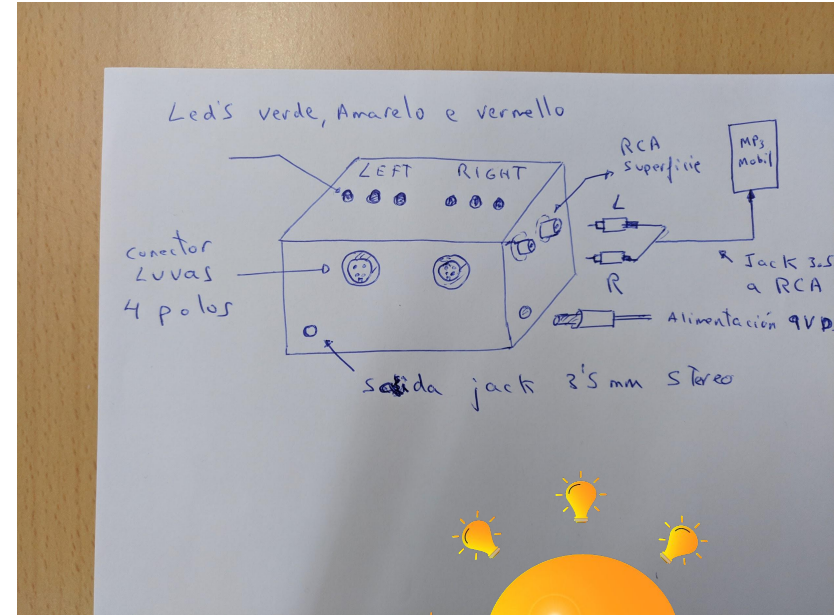 Led's verde, Amarelo e vermello
LEFT RIGHT
RCA
superficie
MP3
Mobil
conector
LUVAS
4 polos
L
R
Jack 3.5
a RCA
Alimentación 9V
Salida jack 3'5 mm Stereo